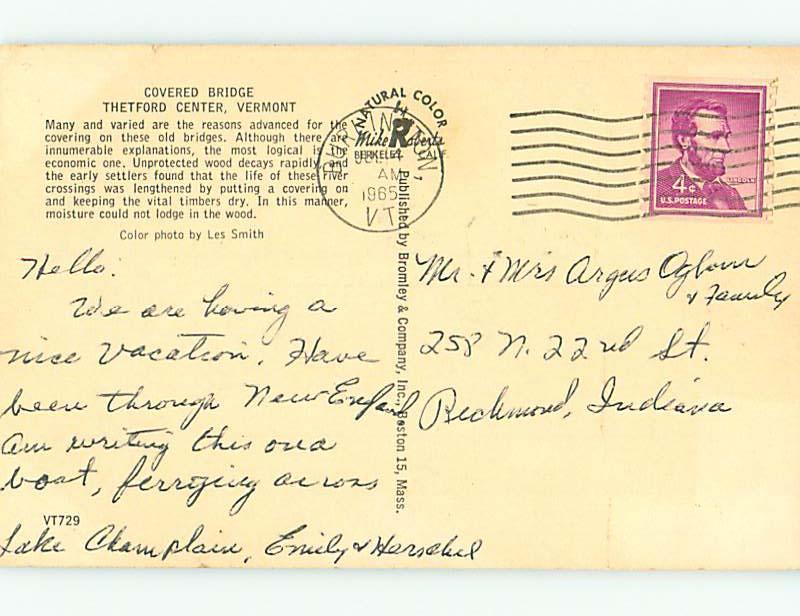 COVERED BRIDGE
THETFORD CENTER, VERMONT
Many and varied are the reasons advanced for the
covering on these old bridges. Although there are
innumerable explanations, the most logical is the
economic one. Unprotected wood decays rapidly and
the early settlers found that the life of these river
crossings was lengthened by putting a covering on
and keeping the vital timbers dry. In this manner,
moisture could not lodge in the wood.
Color photo by Les Smith
NATURAL COLOR
Mike Roberts
BERKELEY CALIF
AM
1965
VT
Published by Bromley & Company, Inc., Boston 15, Mass.
LINCOLN
4¢
U.S. POSTAGE
Hello:
We are having a
nice vacation. Have
been through New England
Am writing this on a
boat, ferrying across
Lake Champlain, Emily & Herschel
VT729
Mr. & Mrs Argus Ogborn
& Family
258 N. 22nd St.
Richmond, Indiana